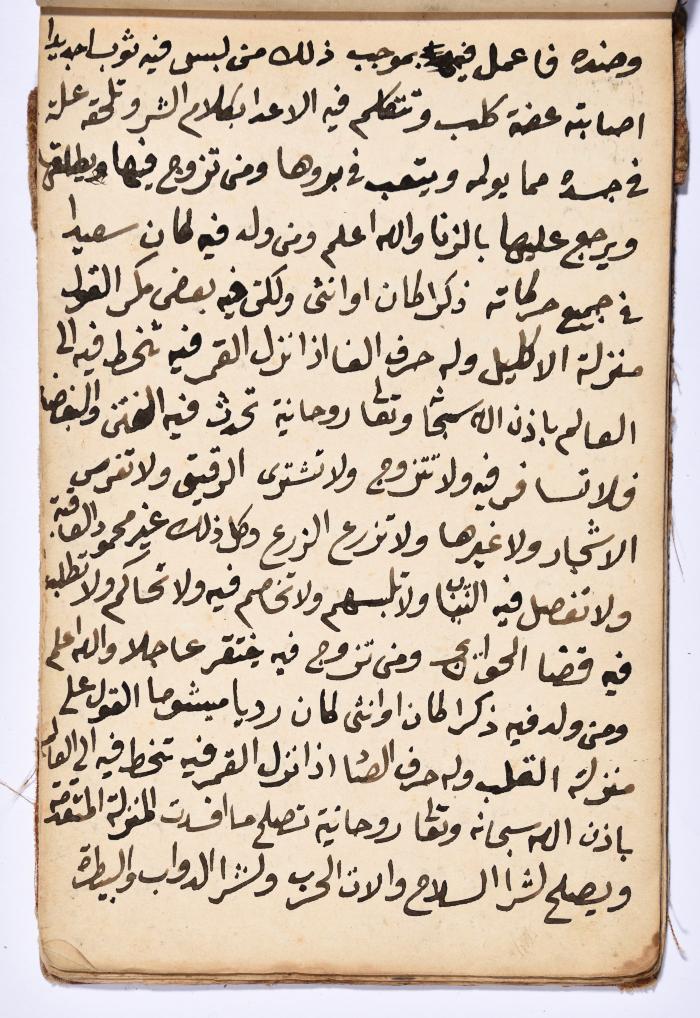 وضده فاعمل فيه بموجب ذلك من لبس فيه ثوبا جديدا
اصابته عضة كلب وتتكلم فيه الاعدا بكلام الشر وتلحقه علة
في جسده مما يولمه ويتعب في بروها ومن تزوج فيها ويطلقها
ويرجع عليها بالزنا والله اعلم ومن ولد فيه كان سعيدا
في جميع حركاته ذكرا كان او انثى ولكن فيه بعض مكر القول
منزلة الاكليل وله حرف الفا اذا نزل القمر فيه تخط فيه الى
العالم باذن الله سبحانه وتعا روحانية تحدث فيه الفتن والبغضا
فلا تسافر فيه ولا تتزوج ولا تشترى الرقيق ولا تغرس
الاشجار ولا غيرها ولا تزرع الزرع وكل ذلك غير محمود العاقبة
ولا تفصل فيه الثياب ولا تلبسهم ولا تخاصم فيه ولا تحاكم ولا تطلب
فيه قضا الحوائج ومن تزوج فيه يفتقر عاجلا والله اعلم
ومن ولد فيه ذكرا كان او انثى كان رديا ميشوما القول على
منزلة القلب وله حرف الصا اذا نزل القمر فيه تخط فيه الي العالم
باذن الله سبحانه وتعا روحانية تصلح ما افسدت المنزلة المتقدمة
ويصلح لشرا السلاح والات الحرب ولشرا الدواب والبيطرة